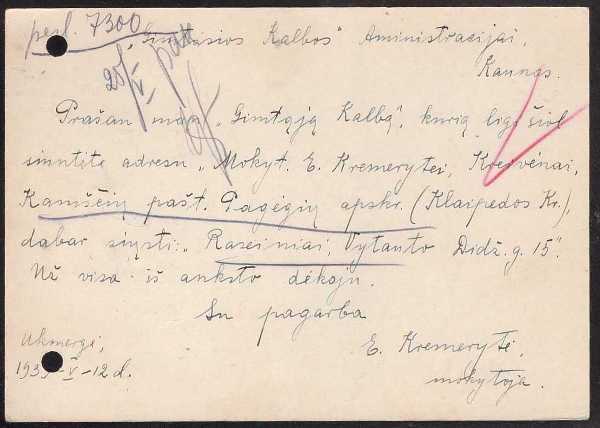 persl. 7300
„Gimtosios Kalbos" Administracijai,
Kaunas.
Prašau man „Gimtąją Kalbą", kurią ligi šiol
siuntėte adresu „Mokyt. E. Kremerytei,
Kamščių pašt. Pagėgių apskr. (Klaipėdos Kr.),
dabar siųsti: „Raseiniai, Vytauto Didž. g. 15".
Už visa iš anksto dėkoju.
Su pagarba
Ukmergė,
E. Kremerytė,
V-12 d.
mokytoja.